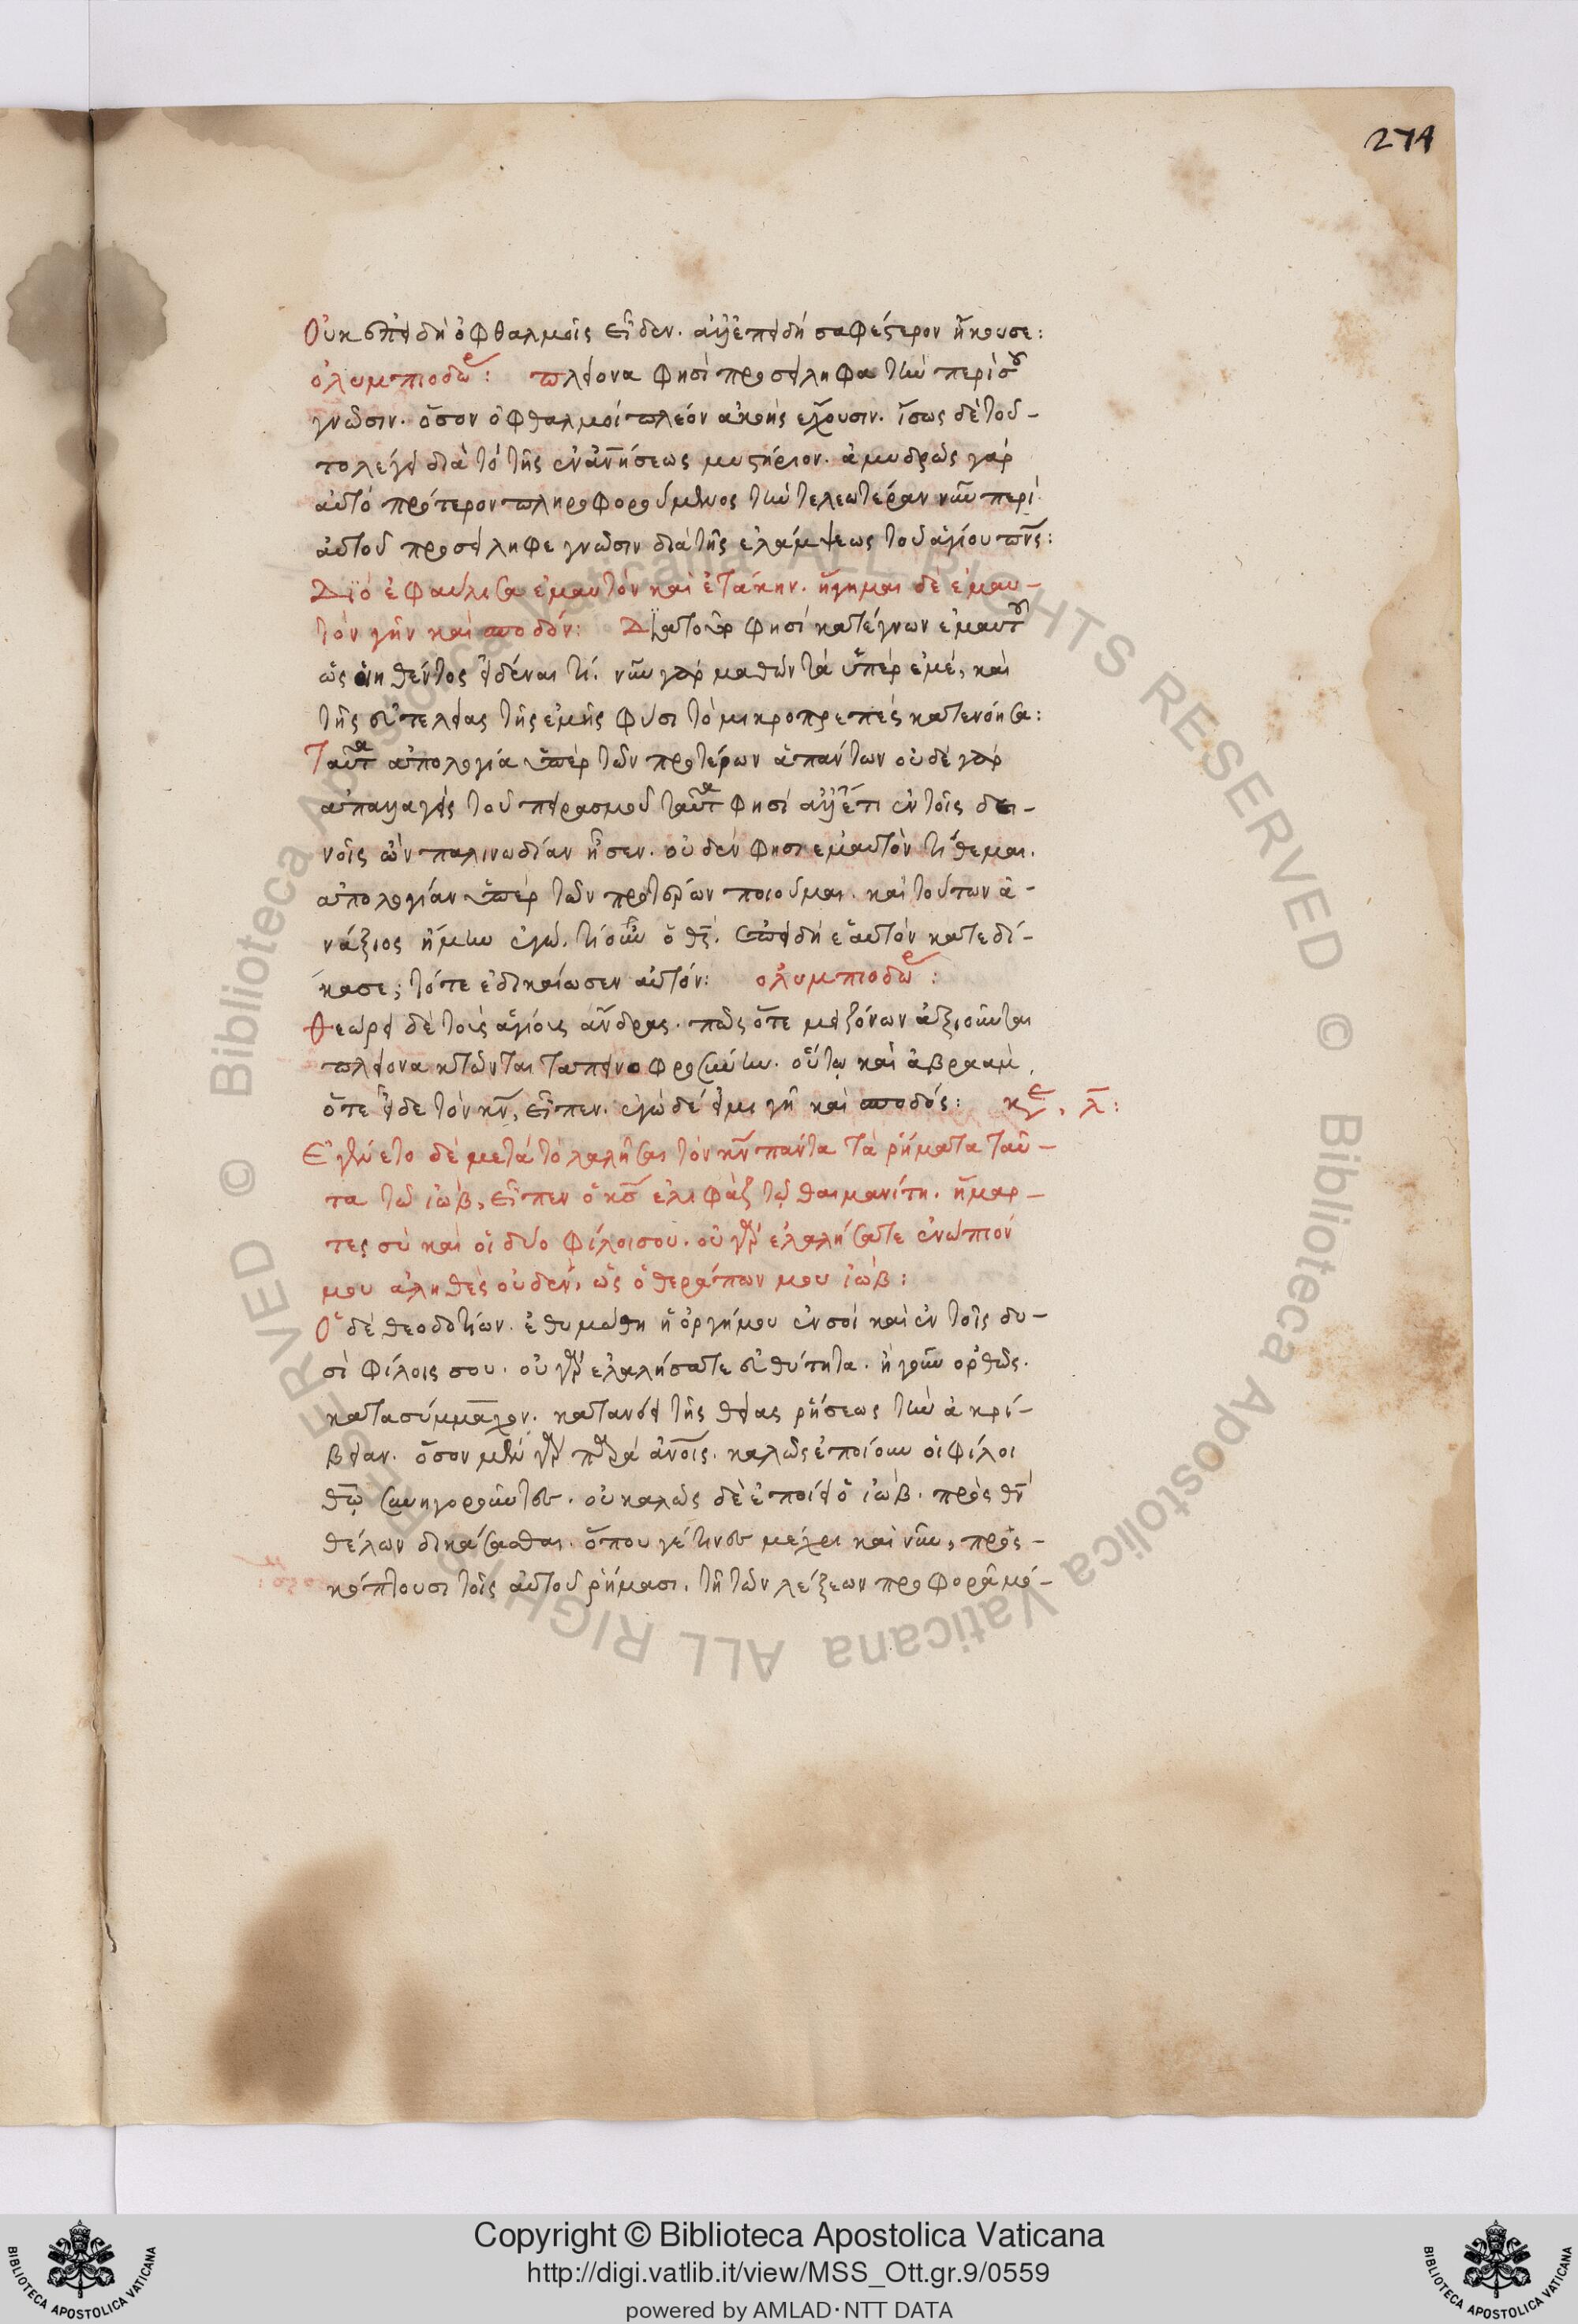 274
Οὐκ ἐπειδὴ ὀφθαλμοῖς εἶδεν. ἀλλ' ἐπειδὴ σαφέστερον ἤκουσε:
ὀλυμπιοδώρ: πλείονα φησὶ προσείληφα τὴν περὶ σοῦ
γνῶσιν. ὅσον ὀφθαλμοὶ πλέον ἀκοῆς ἔχουσιν. ἴσως δὲ τοῦ-
το λέγει διὰ τὸ τῆς ἐναν̅ήσεως μυστήριον. ἀμυδρῶς γὰρ
αὐτὸ πρότερον πληροφορούμενος τὴν τελεωτέραν νῦν περὶ
αὐτοῦ προσείληφε γνῶσιν διὰ τῆς ἐλάμψεως τοῦ ἁγίου πν̅ς:
Διὸ ἐφαύλισα ἐμαυτὸν καὶ ἐτάκην. ἥγημαι δὲ ἐμαυ-
τὸν γῆν καὶ σποδόν: Διὰ τοῦτο φησὶ κατέγνων ἐμαυτοῦ
ὡς οἰηθέντος εἰδέναι τί. νῦν γὰρ μαθὼν τὰ ὑπὲρ ἐμέ, καὶ
τῆς εὐτελείας τῆς ἐμῆς φύσει τὸ μικροπρεπὲς κατενόησα:
Ταῦτα ἀπολογία ὑπὲρ τῶν προτέρων ἁπάντων οὐδὲ γὰρ
ἀπαλλαγεὶς τοῦ πειρασμοῦ ταῦτα φησὶ ἀλλ' ἔτι ἐν τοῖς δει-
νοῖς ὢν παλινωδίαν ᾖσεν. οὐδὲν φησι ἐμαυτὸν τίθεμαι.
ἀπολογίαν ὑπὲρ τῶν προτέρων ποιοῦμαι. καὶ τούτων ἀ-
νάξιος ἤμην ἐγώ. τί οὖν ὁ θς̅. ἐπειδὴ ἑαυτὸν κατεδί-
κασε; τότε ἐδικαίωσεν αὐτόν: ὀλυμπιοδώρ:
Θεώρει δὲ τοὺς ἁγίους ἄνδρας. πῶς ὅτε μειζόνων ἀξιοῦνται
πλείονα κτῶνται ταπεινοφροσύνην. οὕτω καὶ ἀβραὰμ,
ὅτε εἶδε τὸν κν̅, εἶπεν. ἐγὼ δέ εἰμι γῆ καὶ σποδός: κε, λ̅:
Ἐγένετο δὲ μετὰ τὸ λαλῆσαι τὸν κν̅ πάντα τὰ ῥήματα ταῦ-
τα τῷ ἰώβ, εἶπεν ὁ κς̅ ἐλιφὰζ τῷ θαιμανίτῃ. ἥμαρ-
τες σὺ καὶ οἱ δύο φίλοι σου. οὐ γὰρ ἐλαλήσατε ἐνώπιόν
μου ἀληθὲς οὐδέν, ὡς ὁ θεράπων μου ἰώβ:
Ὁ δὲ θεοδοτίων. ἐθυμώθη ἡ ὀργή μου ἐν σοὶ καὶ ἐν τοῖς δυ-
σὶ φίλοις σου. οὐ γὰρ ἐλαλήσατε εὐθύτητα. ἤγουν ὀρθῶς.
κατὰ σύμμαχον. κατανόει τῆς θείας ῥήσεως τὴν ἀκρί-
βειαν. ὅσον μὲν γὰρ παρὰ ἀν̅οις. καλῶς ἐποίουν οἱ φίλοι
θω̅ συνηγοροῦντες. οὐ καλῶς δὲ ἐποίει ὁ ἰώβ. πρὸς θν̅
θέλων δικάσασθαι. ὅπου γέ τινες μέχρι καὶ νῦν, προς-
κόπτουσι τοῖς αὐτοῦ ῥήμασι. τῇ τῶν λέξεων προφορᾷ μό-
Copyright © Biblioteca Apostolica Vaticana
http://digi.vatlib.it/view/MSS_Ott.gr.9/0559
powered by AMLAD·NTT DATA